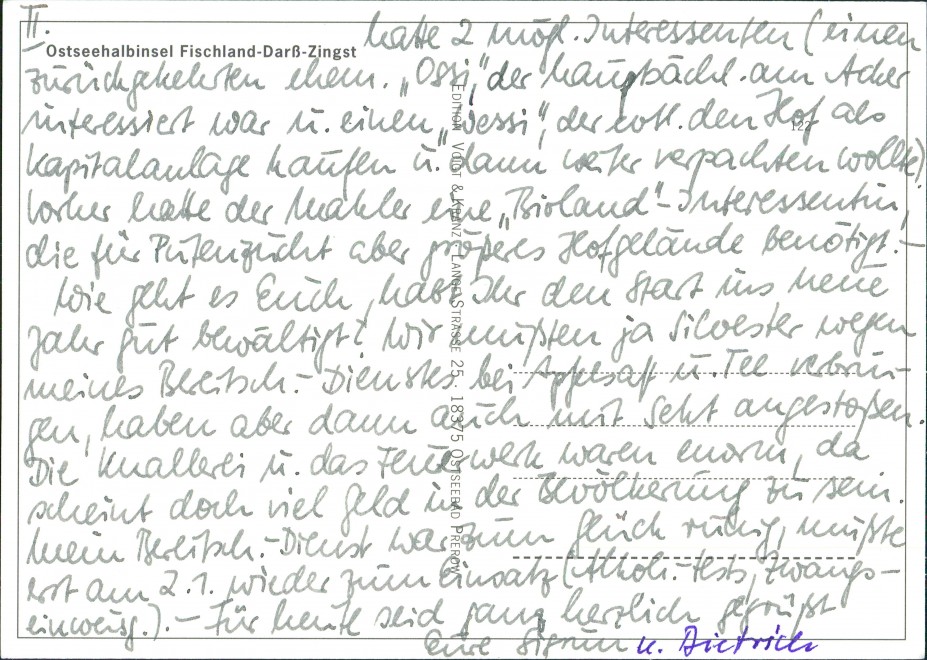 II.
Ostseehalbinsel Fischland-Darß-Zingst
hatte 2 mögl. Interessenten (einen
zurückgekehrten ehem. „Ossi“, der hauptsächl. am Acker
interessiert war u. einen „Wessi“, der evtl. den Hof als
Kapitalanlage kaufen u. dann weiter verpachten wollte).
Vorher hatte der Makler eine „Bioland“-Interessentin,
die für Putenzucht aber größeres Hofgelände benötigt. –
Wie geht es Euch, habt Ihr den Start ins neue
Jahr gut bewältigt? Wir mußten ja Silvester wegen
meines Bereitsch.-Dienstes bei Apfelsaft u. Tee verbrin-
gen, haben aber dann auch mit Sekt angestoßen.
Die Knallerei u. das Feuerwerk waren enorm, da
scheint doch viel Geld in der Bevölkerung zu sein.
Mein Bereitsch.-Dienst war zum Glück ruhig, mußte
erst am 2.1. wieder zum Einsatz (Alkoh.-Tests, Zwangs-
einweisg.). – Für heute seid ganz herzlich gegrüßt
Eure Sigrun u. Dietrich
EDITION VOIGT & KRANZ · LANGE STRASSE 25 · 18375 OSTSEEBAD PREROW
122